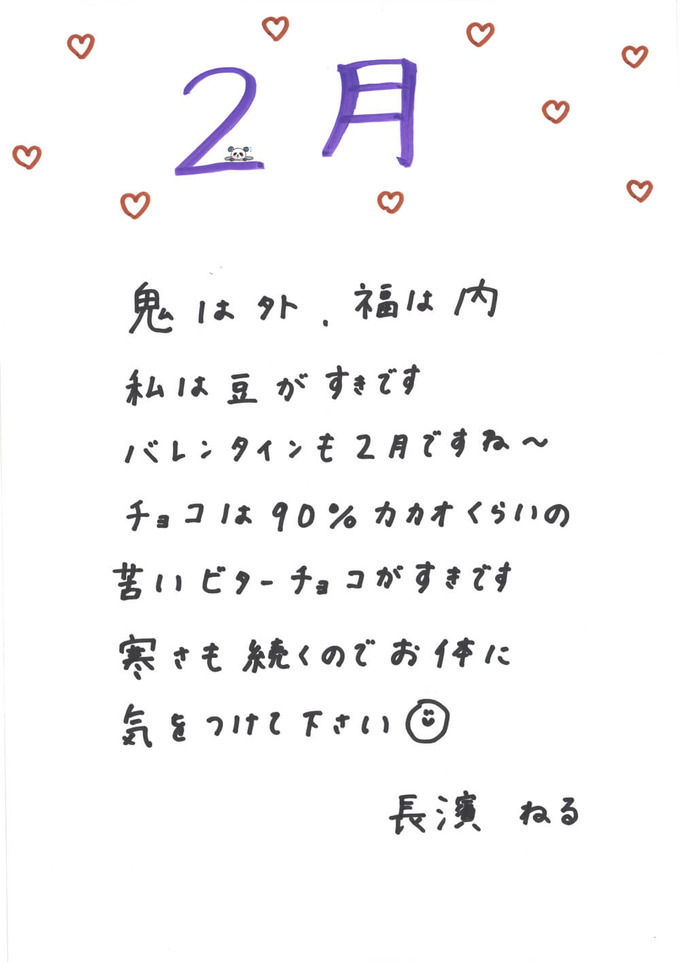 2月
鬼は外、福は内
私は豆がすきです
バレンタインも2月ですね〜
チョコは90%カカオくらいの
苦いビターチョコがすきです
寒さも続くのでお体に
気をつけて下さい
長濱 ねる